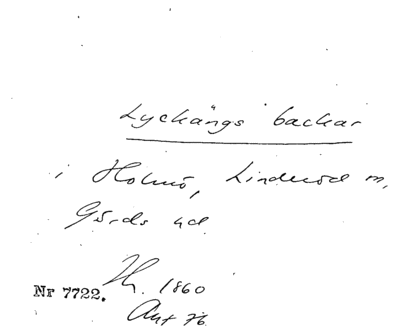 Lyckängs backar
i Holmö, Linderöd m,
Gärds hd
Nr 7722. 1860
Aut 76